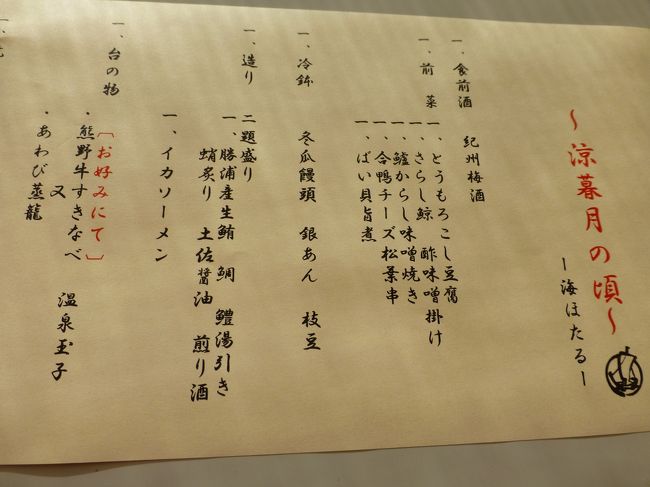 ～涼暮月の頃～
ー海ほたるー
一、食前酒　紀州梅酒
一、前　菜
一、とうもろこし豆腐
一、さらし鯨　酢味噌掛け
一、鱸からし味噌焼き
一、合鴨チーズ松葉串
一、ばい貝旨煮
一、冷鉢　冬瓜饅頭　銀あん　枝豆
一、造り　二題盛り
一、勝浦産生鮪　鯛　鱧湯引き
蛸炙り　土佐醬油　煎り酒
一、イカソーメン
一、台の物
〔お好みにて〕
・熊野牛すきなべ　温泉玉子
又
・あわび蒸籠